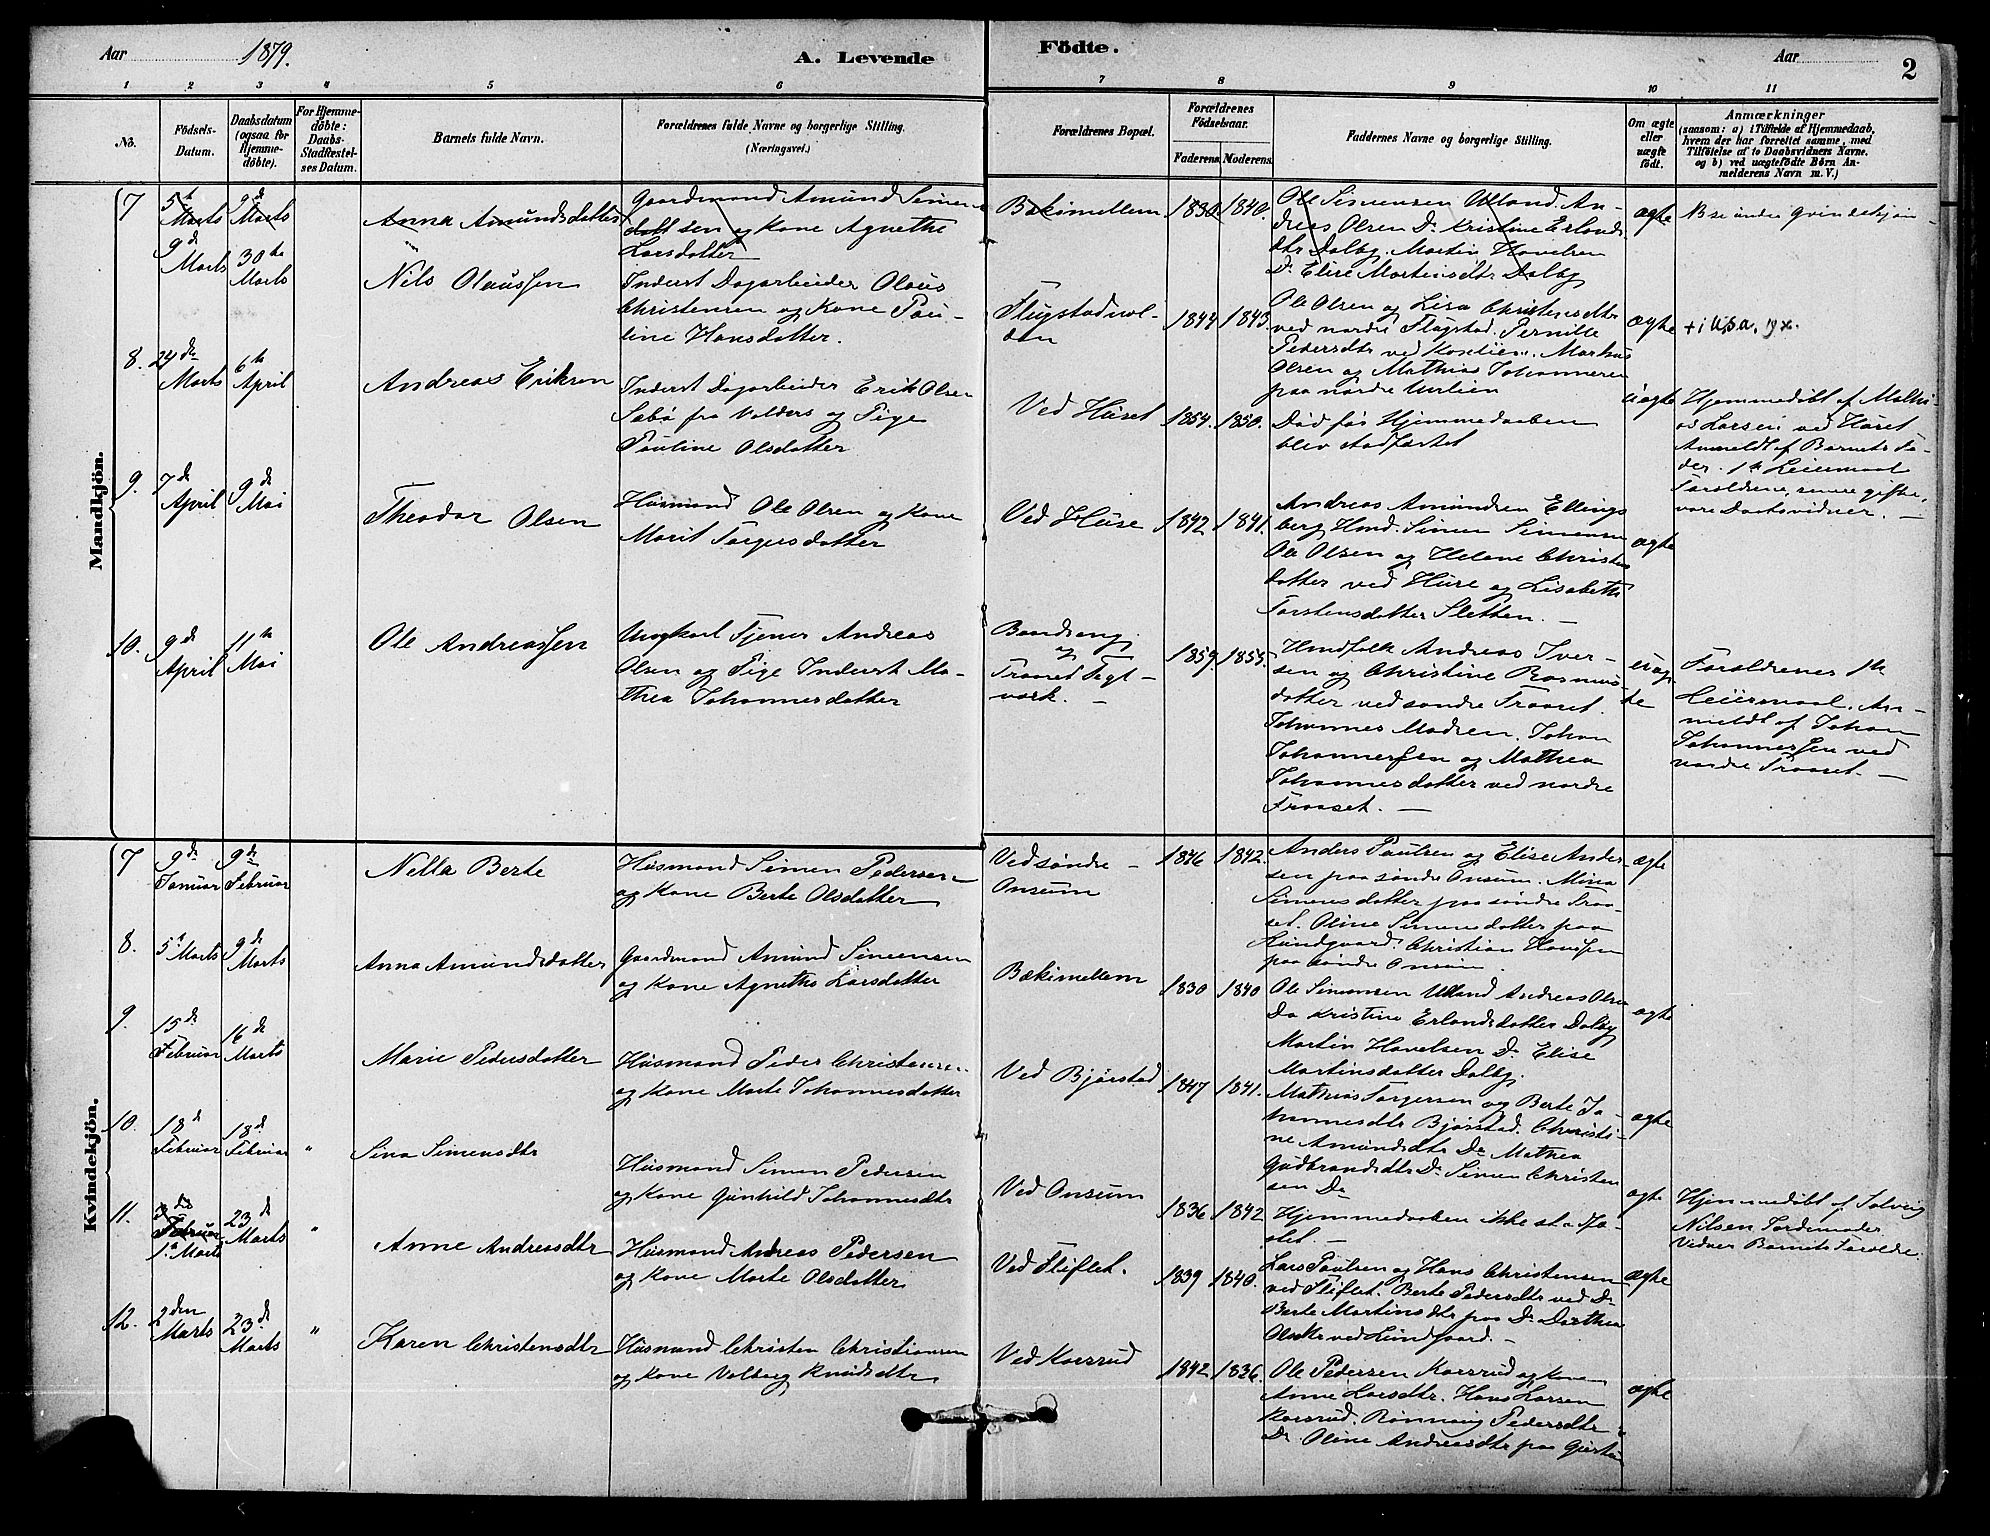 Aar 1879.
A. Levende
Födte.
Aar
2
1 2 3 4 5 6 7 8 9 10 11
No.
Födsels-
Datum.
Daabsdatum
(ogsaa for
Hjemme-
döbte).
For Hjemme-
döbte:
Daabs-
Stadfæstel-
ses Datum.
Barnets fulde Navn.
Forældrenes fulde Navne og borgerlige Stilling.
(Næringsvei.)
Forældrenes Bopæl.
Forældrenes
Födselsaar.
Faderens.
Moderens.
Faddernes Navne og borgerlige Stilling.
Om ægte
eller
uægte
födt.
Anmærkninger
(saasom: a) i Tilfælde af Hjemmedaab,
hvem der har forrettet samme, med
Tilföielse af to Daabsvidners Navne.
og b) ved uægtefödte Börn An-
melderens Navn m. V.)
Mandkjön.
7
5te
Marts
9de
Marts
Anna Amundsdatter
Gaardmand Amund Simen
sen og Kone Agnethe
Larsdatter
Bækimellem
1830
1840.
Ole Simensen Ulland. An-
dreas Olsen Do Kristine Erlands
dtr Dalby. Martin Havelsen
Do Elise Martinsdtr Dalby
ægte
Nse under Qvindekjön
9de
Marts
30te
Marts
Nils Olaussen
Inderst Dagarbeider Olaus
Christensen og Kone Pau-
line Hansdatter.
Flugstadvol-
den
1844
1843.
Ole Olsen og Lisa Christensdtr
ved nordre Flugstad. Pernille
Pedersdtr ved Kostien. Markus
Olsen og Mathias Johannesen
paa nordre Urlien
ægte
8.
24de
Marts
6te
April
Andreas Eriksen
Inderst Dagarbeider Erik Olsen
Sæbö fra Valders og Pige
Pauline Olsdatter
Ved Huset
1854.
1850.
Död för Hjemmedaaben
blev stadfæstet
uægte
Hjemmedöbt af Mathi-
as Larsen ved Huset
Anmeldt af Barnets Fa-
der. 1te Leiermaal
Forældrene, senere gifte,
vare Daabsvidner. —
9.
7de
April
9de
Mai
Theodor Olsen
Husmand Ole Olsen og Kone
Marit Torgersdatter
Ved Huse
1842
1841.
Andreas Amundsen Ellings
berg Hmd. Simen Simensen
Ole Olsen og Helene Christens
datter ved Huse og Lisabeth
Torstensdatter Sletten. —
ægte
10.
9de
April
11te
Mai
Ole Andreassen
Ungkarl Tjener Andreas
Olsen og Pige Inderst Ma-
thea Johannesdatter
Baadseng
og
Traaset Tegl-
værk. —
1859.
1853.
Hmdfolk Andreas Iver-
sen og Christine Rasmus
datter ved söndre Traaset.
Johannes Madsen. Johan
Johannessen og Mathea
Johannesdatter ved nordre
Traaset. —
uæg-
te
Forældrenes 1te
Leiermaal. An-
meldt af Johan
Johannessen ved
nordre Traaset. —
Kvindekjön.
7
9de
Januar
9de
Februar
Nella Berte
Husmand Simen Pedersen
og Kone Berte Olsdatter
Ved söndre
Onsum
1846
1842.
Anders Paulsen og Elise Ander-
sen paa söndre Onsum. Mina
Simensdatter paa söndre Traa-
set. Oline Simensdatter paa
Lundgaard. Christian Hanssen
paa söndre Onsum
ægte
8.
5te Marts
9de
Marts
Anna Amundsdatter
Gaardmand Amund Simensen
og Kone Agnethe Larsdatter
Bækimellem
1830
1840
Ole Simensen Ulland Andreas Olsen
Do Kristine Erlandsdatter Dalby
Martin Havelsen Do Elise
Martinsdatter Dalby.
ægte
9.
15de
Februar
16de
Marts
Marie Pedersdatter
Husmand Peder Christensen
og Kone Marte Johannesdatter
Ved Bjørstad
1847
1841.
Mathias Torgersen og Berte Jo-
hannesdtr Bjørstad. Christi-
ne Amundsdtr Do Mathea
Gudbrandsdtr Do Simen Christen
sen Do
ægte
10.
18de
Februar
18de
Februar
"
Sina Simensdtr
Husmand Simen Pedersen
og Kone Gunhild Johannesdtr
Ved Onsum
1836
1842
Hjemmedaaben ikke stadfæ-
stet. —
ægte
Hjemmedöbt af Solveig
Nilsen Jordemoder
Vidner Barnets Forældre.
11.
Februar
1te Marts
23de
Marts
"
Anne Andreasdtr
Husmand Andreas Pedersen
og Kone Marte Olsdatter
Ved Fliflet.
1839
1840.
Lars Paulsen og Hans Christensen
ved Fliflet. Berte Pedersdtr ved Do
Berte Martinsdtr paa Do Dorthea
Olsdtr ved Lundgaard. —
ægte
12.
2den
Marts
23de
Marts
"
Karen Christensdtr
Husmand Christen Christiansen
og Kone Valborg Knudsdtr
Ved Korsrud
1842
1836.
Ole Pedersen Korsrud og Kone
Anne Larsdtr. Hans Larsen
Korsrud. Rønnaug Pedersdtr
Do Oline Andreasdtr paa
ægte